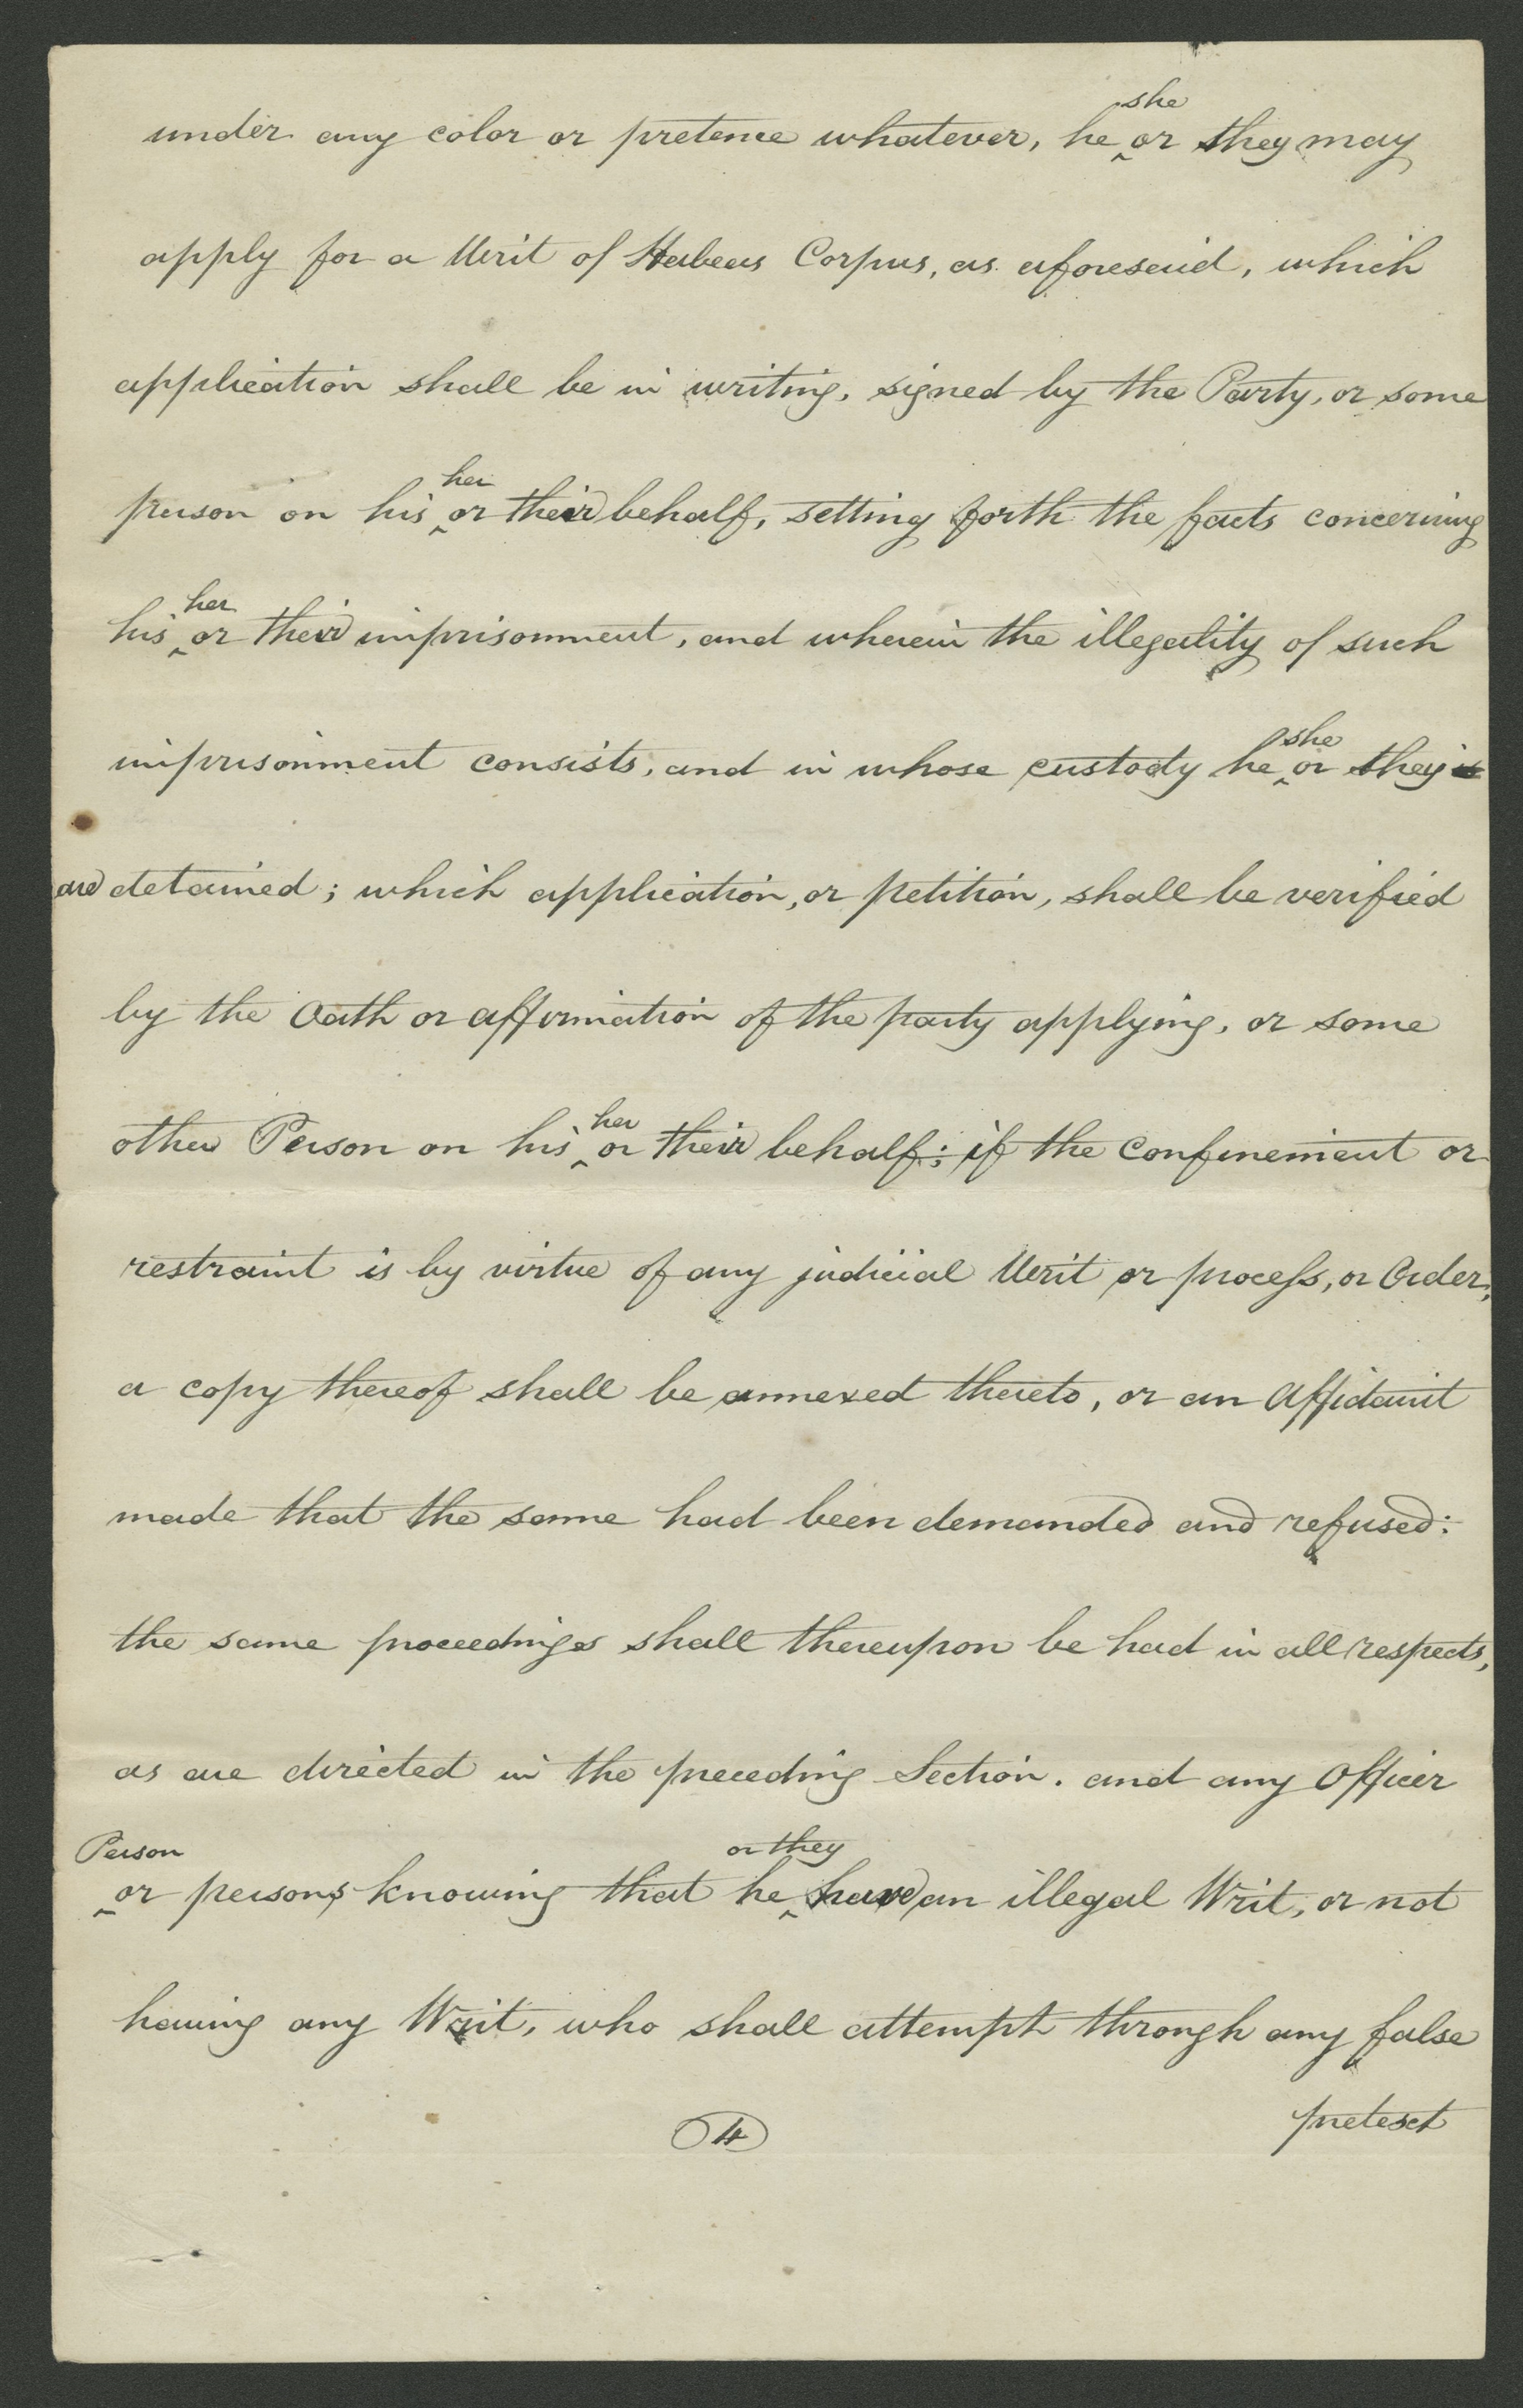 she
under any color or pretence whatever, he ‸ or they may
apply for a Writ of Habeas Corpus, as aforesaid, which
application shall be in writing, signed by the Party, or some
her
person on his ‸ or their behalf, setting forth the facts concerning
her
his ‸ or their imprisonment, and wherein the illegality of such
she
imprisonment consists, and in whose custody he ‸ or they is
are detained; which application, or petition, shall be verified
by the Oath or affirmation of the party applying, or some
her
other Person on his ‸ or their behalf; if the confinement or
restraint is by virtue of any judicial Writ or process, or Order,
a copy thereof shall be annexed thereto, or an Affidavit
made that the same had been demanded and refused:
the same proceedings shall thereupon be had in all respects,
as are directed in the preceding Section. and any Officer
Person or they
‸ or persons knowing that he ‸ have an illegal Writ, or not
having any Writ, who shall attempt through any false
pretext
4